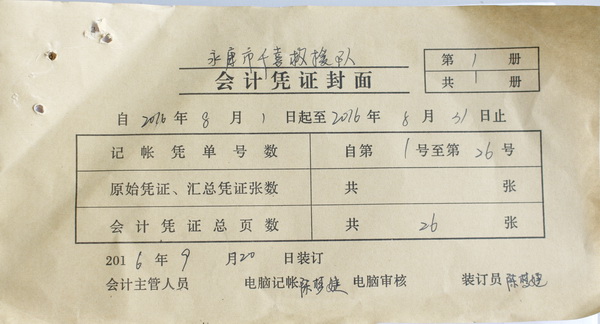 永康市千喜救援队
会计凭证封面
第1册
共1册
自2016年8月1日起至2016年8月31日止
记帐凭单号数 自第1号至第26号
原始凭证、汇总凭证张数 共 张
会计凭证总页数 共26张
2016年9月20日装订
会计主管人员 电脑记帐 电脑审核 装订员